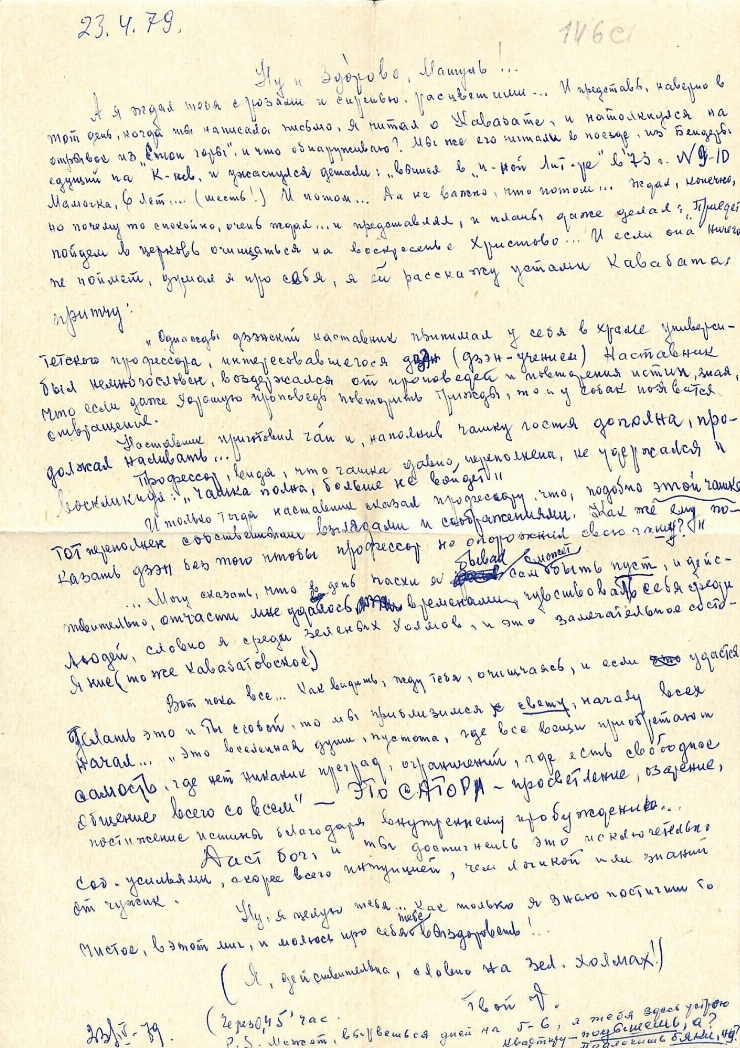 23.4.79.
146с
Ну и здорово, Машуль!...
А я ждал тебя с розами и сиренью расцветшими... И представь, наверно в
тот день, когда ты написала письмо, я читал о Кавабате, и натолкнулся на
отрывок из "Стон горы", и что обнаруживаю? Мы же его читали в поезде, из Бендеры
едущий на "К-нев, и ужаснулся детали: "вышел в "И-ной Лит-ре" в 75 г. N 9-10
Мамочка, 6 лет... (шесть!) И потом... Аа не важно, что потом... Ждал, конечно,
но почему то спокойно, очень ждал... и представлял, и планы даже делал: "Приедет
пойдем в церковь очищаться на воскресенье Христово... И если она ничего
не поймет, думал я про себя, я ей расскажу устами Кавабата,
притчу:
"Однажды дзэнский наставник принимал у себя в храме универси-
тетского профессора, интересовавшегося дзэн (дзэн-учением) Наставник
был немногословен, воздержался от проповедей и повторения истин, зная,
что если даже хорошую проповедь повторить трижды, то и у собак появится
отвращение.
Наставник приготовил чай и, наполнив чашку гостя дополна, про-
должал наливать...
Профессор, видя, что чашка давно переполнена, не удержался и
воскликнул: "Чашка полна, больше не войдет"
И только тогда наставник сказал профессору, что, подобно этой чашке
тот переполнен собственными взглядами и соображениями. Как же ему по-
казать дзэн без того чтобы профессор не опорожнил свою чашу?"
... Могу сказать, что в день пасхи я бывал сам быть пуст, и дейс-
твительно, отчасти мне удалось временами, чувствовать себя среди
людей, словно я среди зеленых холмов, и это замечательное состо-
яние (тоже Кавабатовское!)
Вот пока все... Как видишь, жду тебя, очищаясь, и если удастся
делать это и Ты собой, то мы приблизимся к свету, началу всех
начал... "Это вселенная души, пустота, где все вещи приобретают
самость, где нет никаких преград, ограничений, где есть свободное
общение всего со всем" — ЭТО САТОРИ – просветление, озарение,
постижение истины благодаря внутреннему пробуждению...
Даст бог, и ты достигнешь это исключительно
соб. усильями, скорее всего интуицией, чем логикой или знаний
от чужих.
Ну, я целую тебя... как только я знаю постигши то
чистое, в этот миг, и молюсь про себя тебе выздороветь!..
(Я, действительно, словно на зел. холмах!)
Твой V.
23/IV-79. (Через 0,45 час.
P.S. Может, вырвешься дней на 5-6, я тебя здесь устрою
квартиру – подышешь, а?